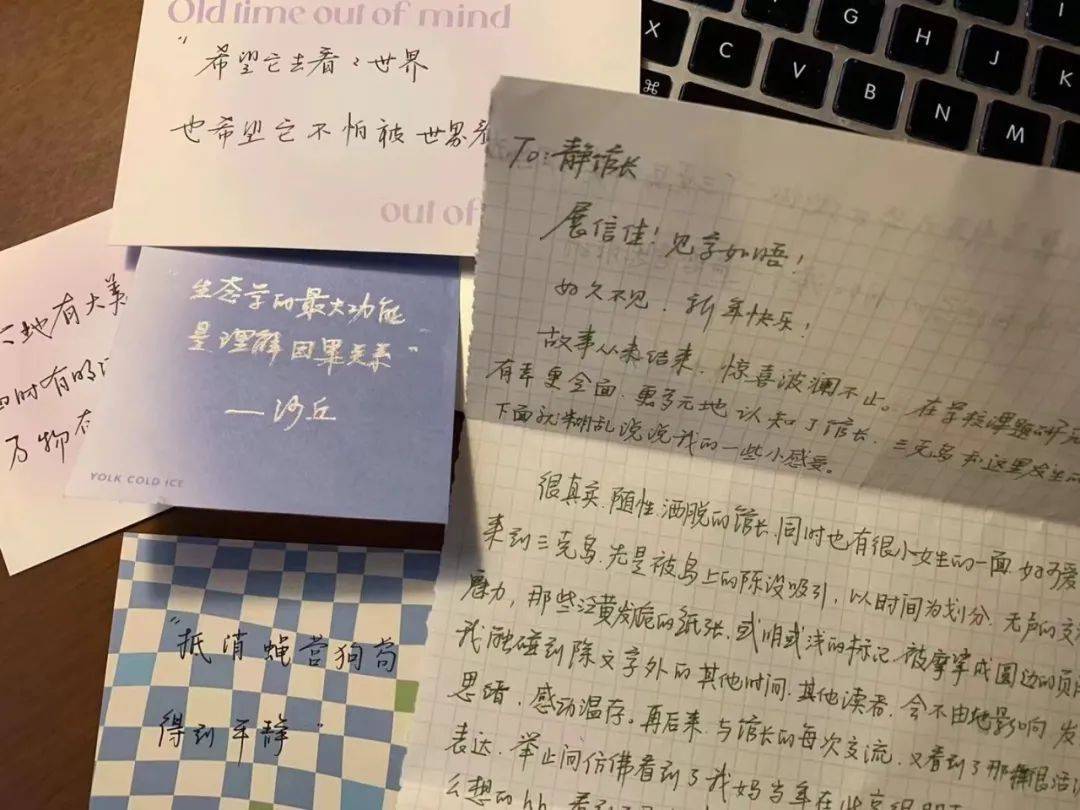 Old time out of mind
"希望它去看看世界
也希望它不怕被世界看
out of
地有大美
四时有明
万物有
"生态学的最大功能
是理解因果关系"
—沙丘
YOLK COLD ICE
"抵消蝇营狗苟
得到平静"
X C V B G H N J M K
⌘
To:静馆长
展信佳!见字如晤!
好久不见,新年快乐!
故事从未结束,惊喜波澜不止。在学校课题研究
有幸更全面、更多元地认知了馆长、三克岛和这里发生的
下面就糊乱说说我的一些小感受。
很真实、随性、洒脱的馆长,同时也有很小女生的一面,如可爱
来到三克岛,先是被岛上的陈设吸引,以时间为划分,无声的交
魔力,那些泛黄发脆的纸张,或明或浅的标记,被摩挲成圆边的页
我触碰到除文字外的其他时间、其他读者,会不由地影响 发
思绪,感动温存。再后来,与馆长的每次交流,又看到了那种很活
表达,举止间仿佛看到了我妈当年在
么想的hh